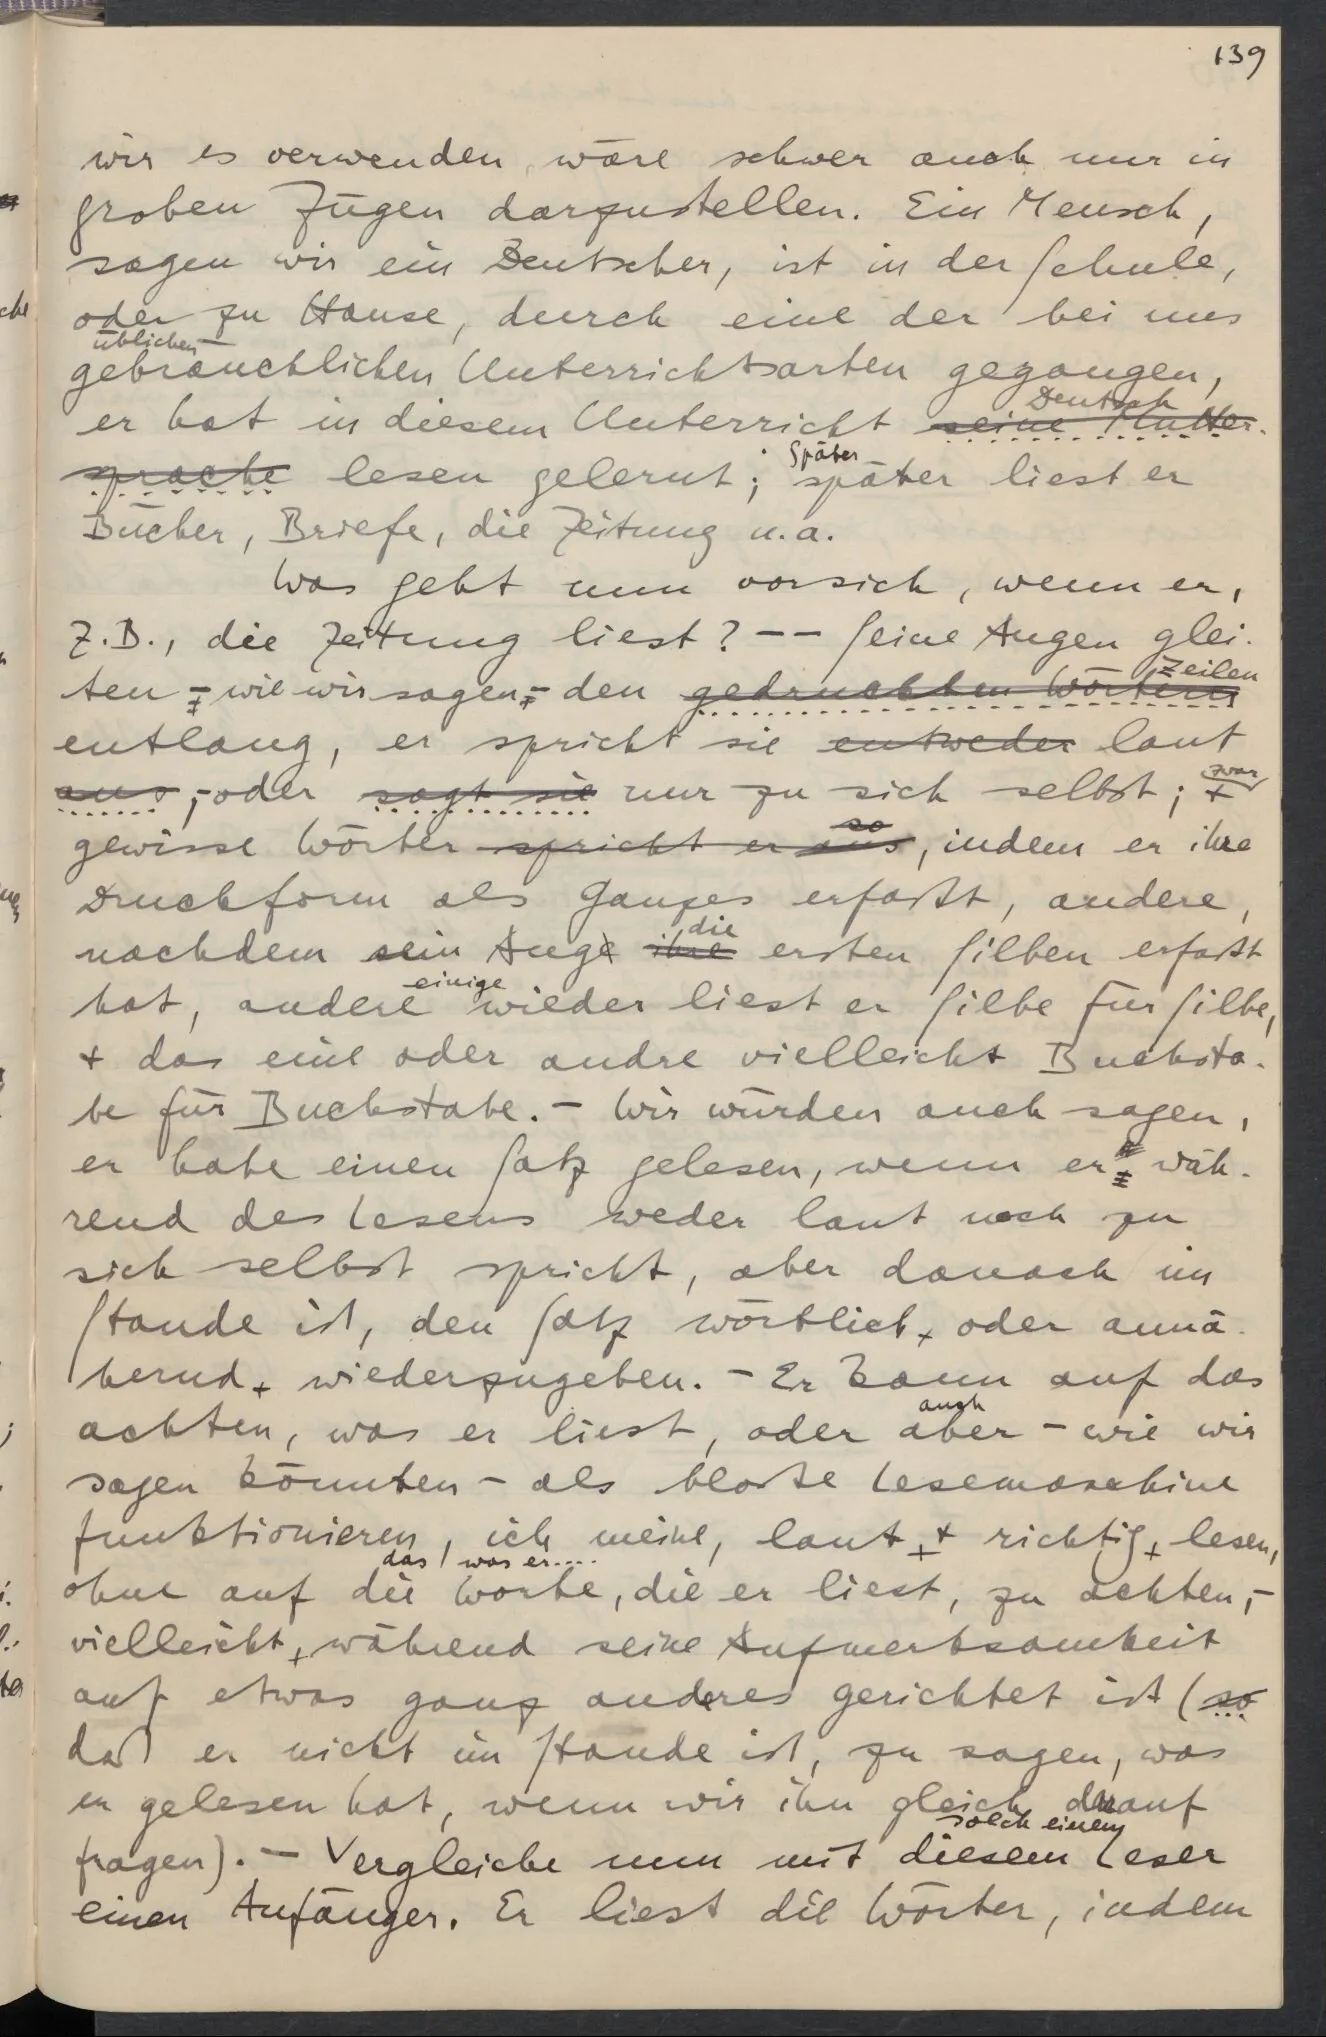 139
wir es verwenden, wäre schwer auch nur in
groben Zügen darzustellen. Ein Mensch,
sagen wir ein Deutscher, ist in der Schule,
oder zu Hause, durch eine der bei uns
üblichen
gebräuchlichen Unterrichtsarten gegangen,
Deutsch
er hat in diesem Unterricht seine Mutter-
Später
sprache lesen gelernt; später liest er
Bücher, Briefe, die Zeitung u.a.
Was geht nun vorsich, wenn er,
z.B., die Zeitung liest? -- Seine Augen glei-
Zeilen
ten - wie wir sagen - den gedruckten Wörtern
entlang, er spricht sie entweder laut
zwar
aus, - oder sagt sie nur zu sich selbst; +
so
gewisse Wörter spricht er aus, indem er ihre
Druckform als Ganzes erfaßt, andere,
die
nachdem sein Auge ihre ersten Silben erfaßt
einige
hat, andere wieder liest er Silbe für Silbe,
+ das eine oder andre vielleicht Buchsta-
be für Buchstabe. - Wir würden auch sagen,
er habe einen Satz gelesen, wenn er wäh-
rend des Lesens weder laut noch zu
sich selbst spricht, aber danach im
Stande ist, den Satz wörtlich, oder annä-
hernd, wiederzugeben. - Er kann auf das
auch
achten, was er liest, oder aber - wie wir
sagen könnten - als bloße Lesemaschine
funktionieren, ich meine, laut + richtig, lesen,
das was er....
ohne auf die Worte, die er liest, zu achten, -
vielleicht, während seine Aufmerksamkeit
auf etwas ganz anderes gerichtet ist (so
daß er nicht im Stande ist, zu sagen, was
er gelesen hat, wenn wir ihn gleich darauf
solch einem
fragen). - Vergleiche nun mit diesem Leser
einen Anfänger. Er liest die Wörter, indem